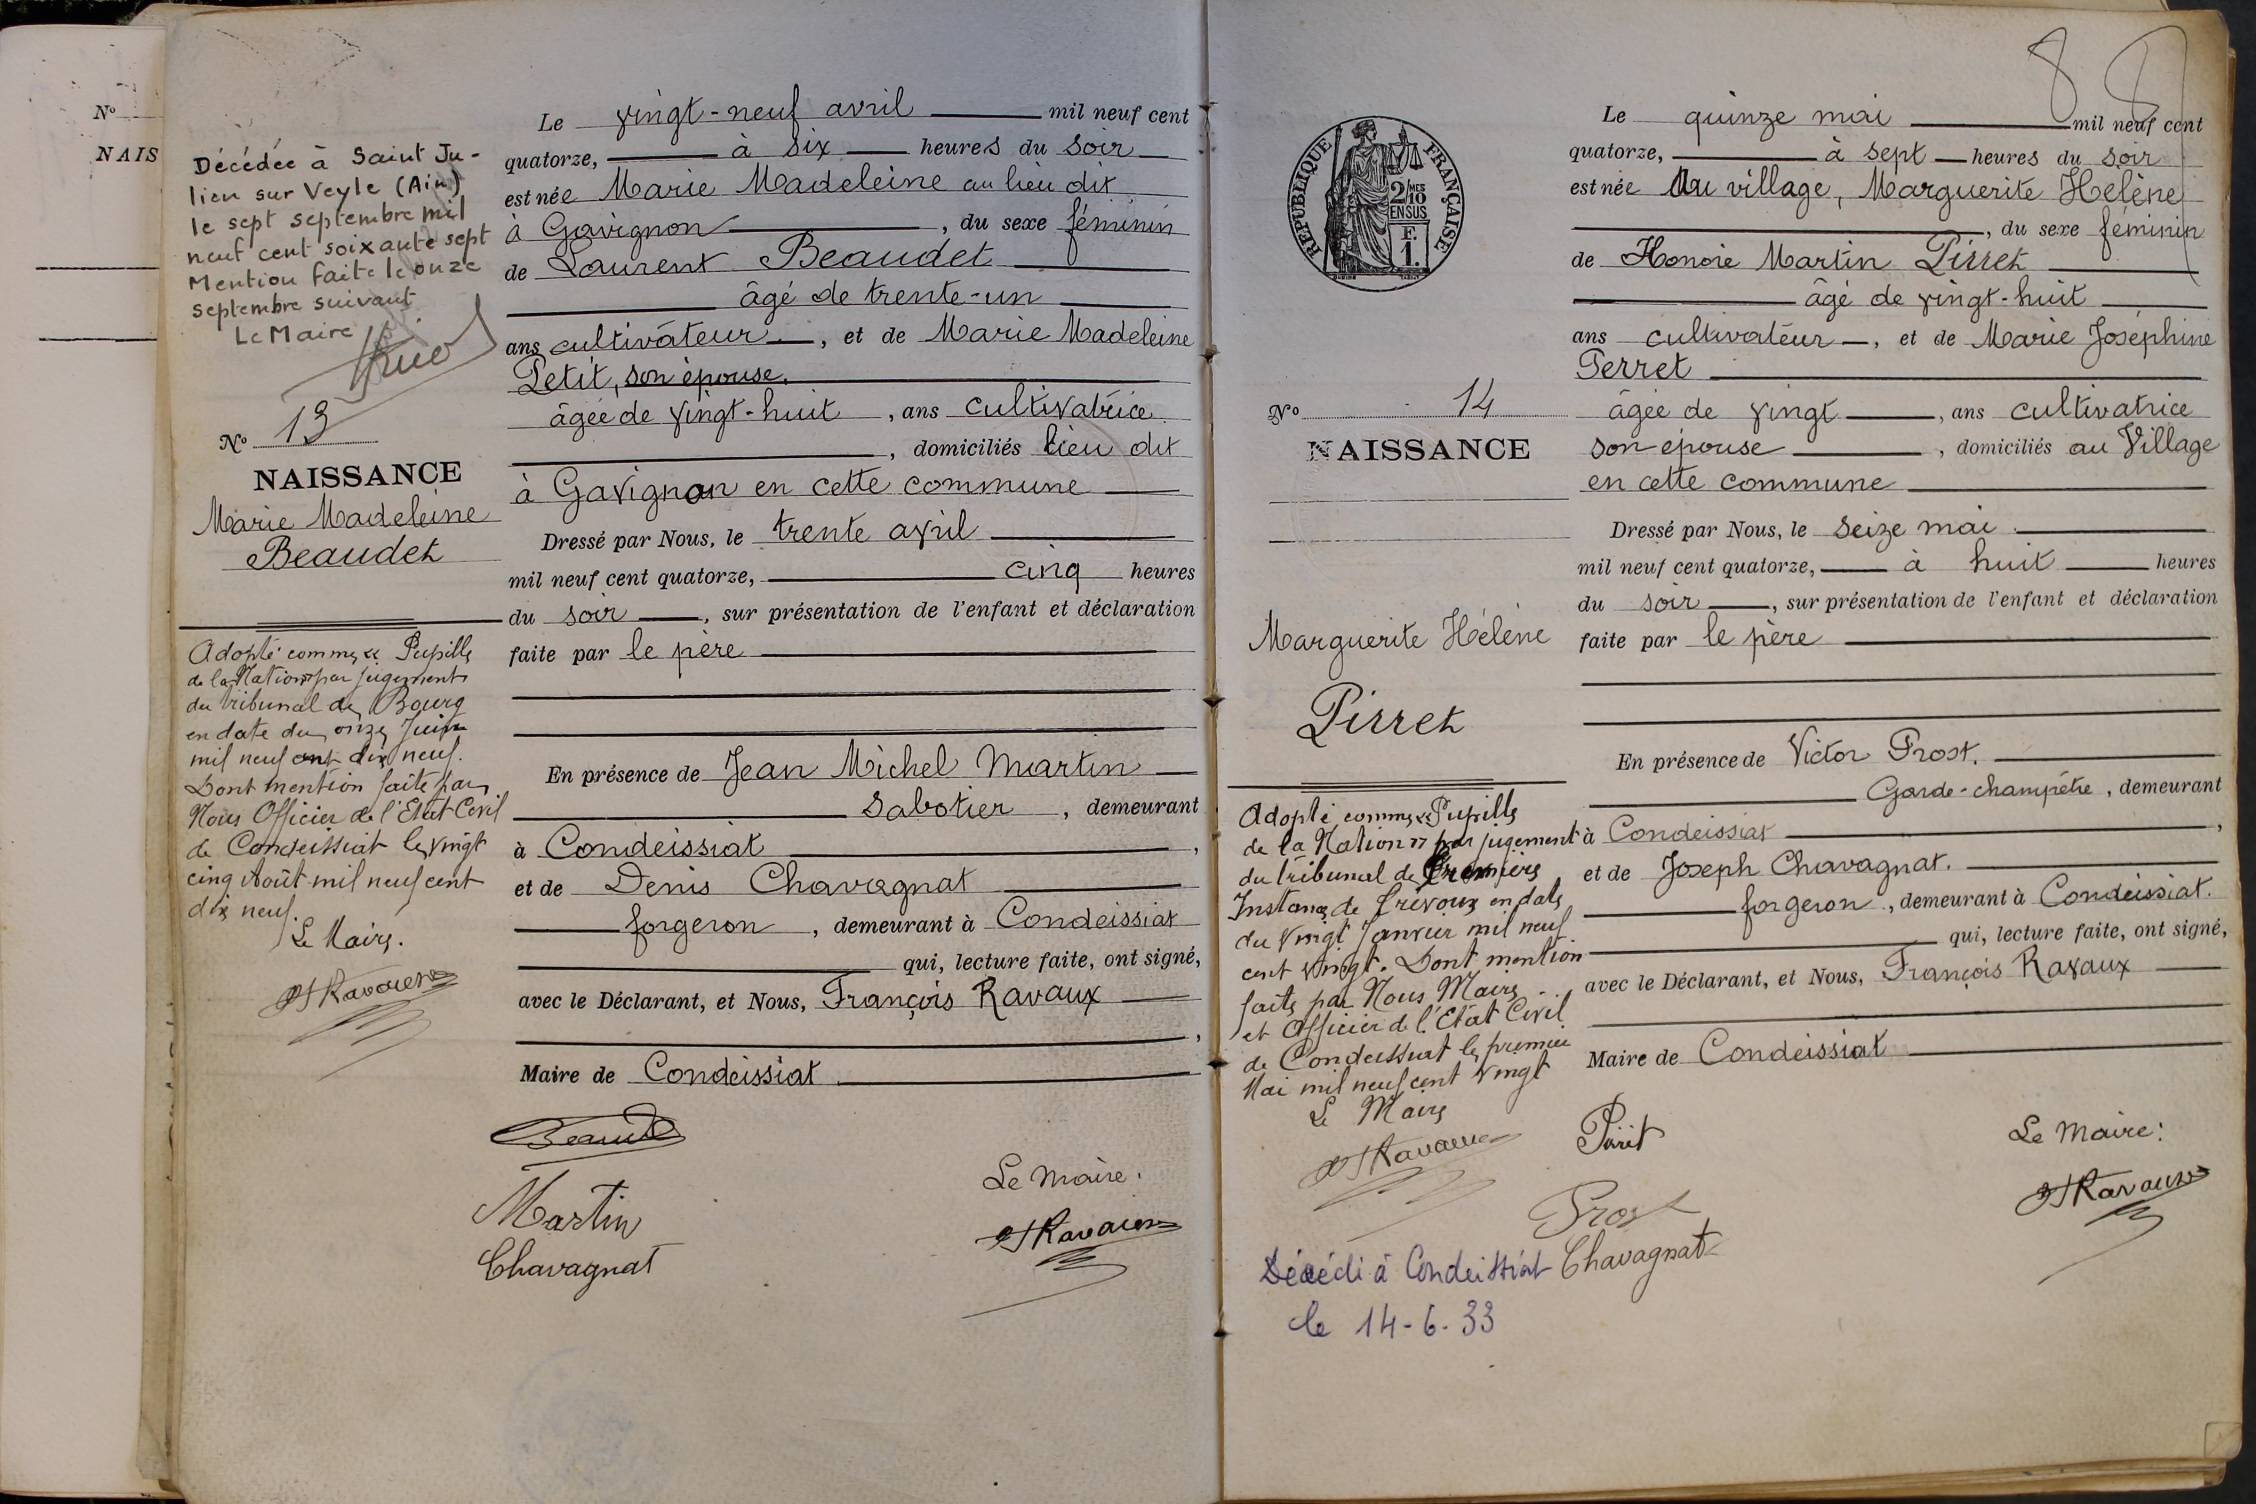 Nº
NAIS
Décédée à Saint Ju-
lien sur Veyle (Ain)
le sept septembre mil
neuf cent soixante sept
Mention faite le onze
septembre suivant
Le Maire
Nº 13
NAISSANCE
Marie Madeleine
Beaudet
Adopté comme « Pupille
de la Nation » par jugement
du tribunal de Bourg
en date du onze Juin
mil neuf cent dix neuf.
Dont mention faite par
Nous Officier de l'Etat Civil
de Condeissiat le vingt
cinq Août mil neuf cent
dix neuf.
Le Maire.
Ravaux
Le vingt-neuf avril mil neuf cent
quatorze, à six heures du soir
est née Marie Madeleine au lieu dit
à Gavignon, du sexe féminin
de Laurent Beaudet
âgé de trente-un
ans cultivateur, et de Marie Madeleine
Petit, son épouse.
âgée de vingt-huit, ans cultivatrice
, domiciliés lieu dit
à Gavignon en cette commune
Dressé par Nous, le trente avril
mil neuf cent quatorze, cinq heures
du soir, sur présentation de l'enfant et déclaration
faite par le père
En présence de Jean Michel Martin
sabotier, demeurant
à Condeissiat,
et de Denis Chavagnat
forgeron, demeurant à Condeissiat
qui, lecture faite, ont signé,
avec le Déclarant, et Nous, François Ravaux
,
Maire de Condeissiat
Beaudet
Martin
Chavagnat
Le Maire.
Ravaux
8
RÉPUBLIQUE FRANÇAISE
2/10MES
EN SUS
F.
1.
Nº 14
NAISSANCE
Marguerite Hélène
Pirret
Adopté comme « Pupille
de la Nation » par jugement
du tribunal de Première
Instance de Trévoux en date
du vingt Janvier mil neuf
cent vingt. Dont mention
faite par Nous Maire
et Officier de l'Etat Civil
de Condeissiat le premier
Mai mil neuf cent vingt
Le Maire
Ravaux
Décédé à Condeissiat
le 14-6-33
Le quinze mai mil neuf cent
quatorze, à sept heures du soir
est née Au village, Marguerite Hélène
, du sexe féminin
de Honoré Martin Pirret
âgé de vingt-huit
ans cultivateur, et de Marie Joséphine
Perret
âgée de vingt, ans cultivatrice
son épouse, domiciliés au Village
en cette commune
Dressé par Nous, le seize mai
mil neuf cent quatorze, à huit heures
du soir, sur présentation de l'enfant et déclaration
faite par le père
En présence de Victor Prost.
Garde-champêtre, demeurant
à Condeissiat,
et de Joseph Chavagnat.
forgeron, demeurant à Condeissiat.
qui, lecture faite, ont signé,
avec le Déclarant, et Nous, François Ravaux
Maire de Condeissiat
Pirret
Prost
Chavagnat
Le Maire:
Ravaux